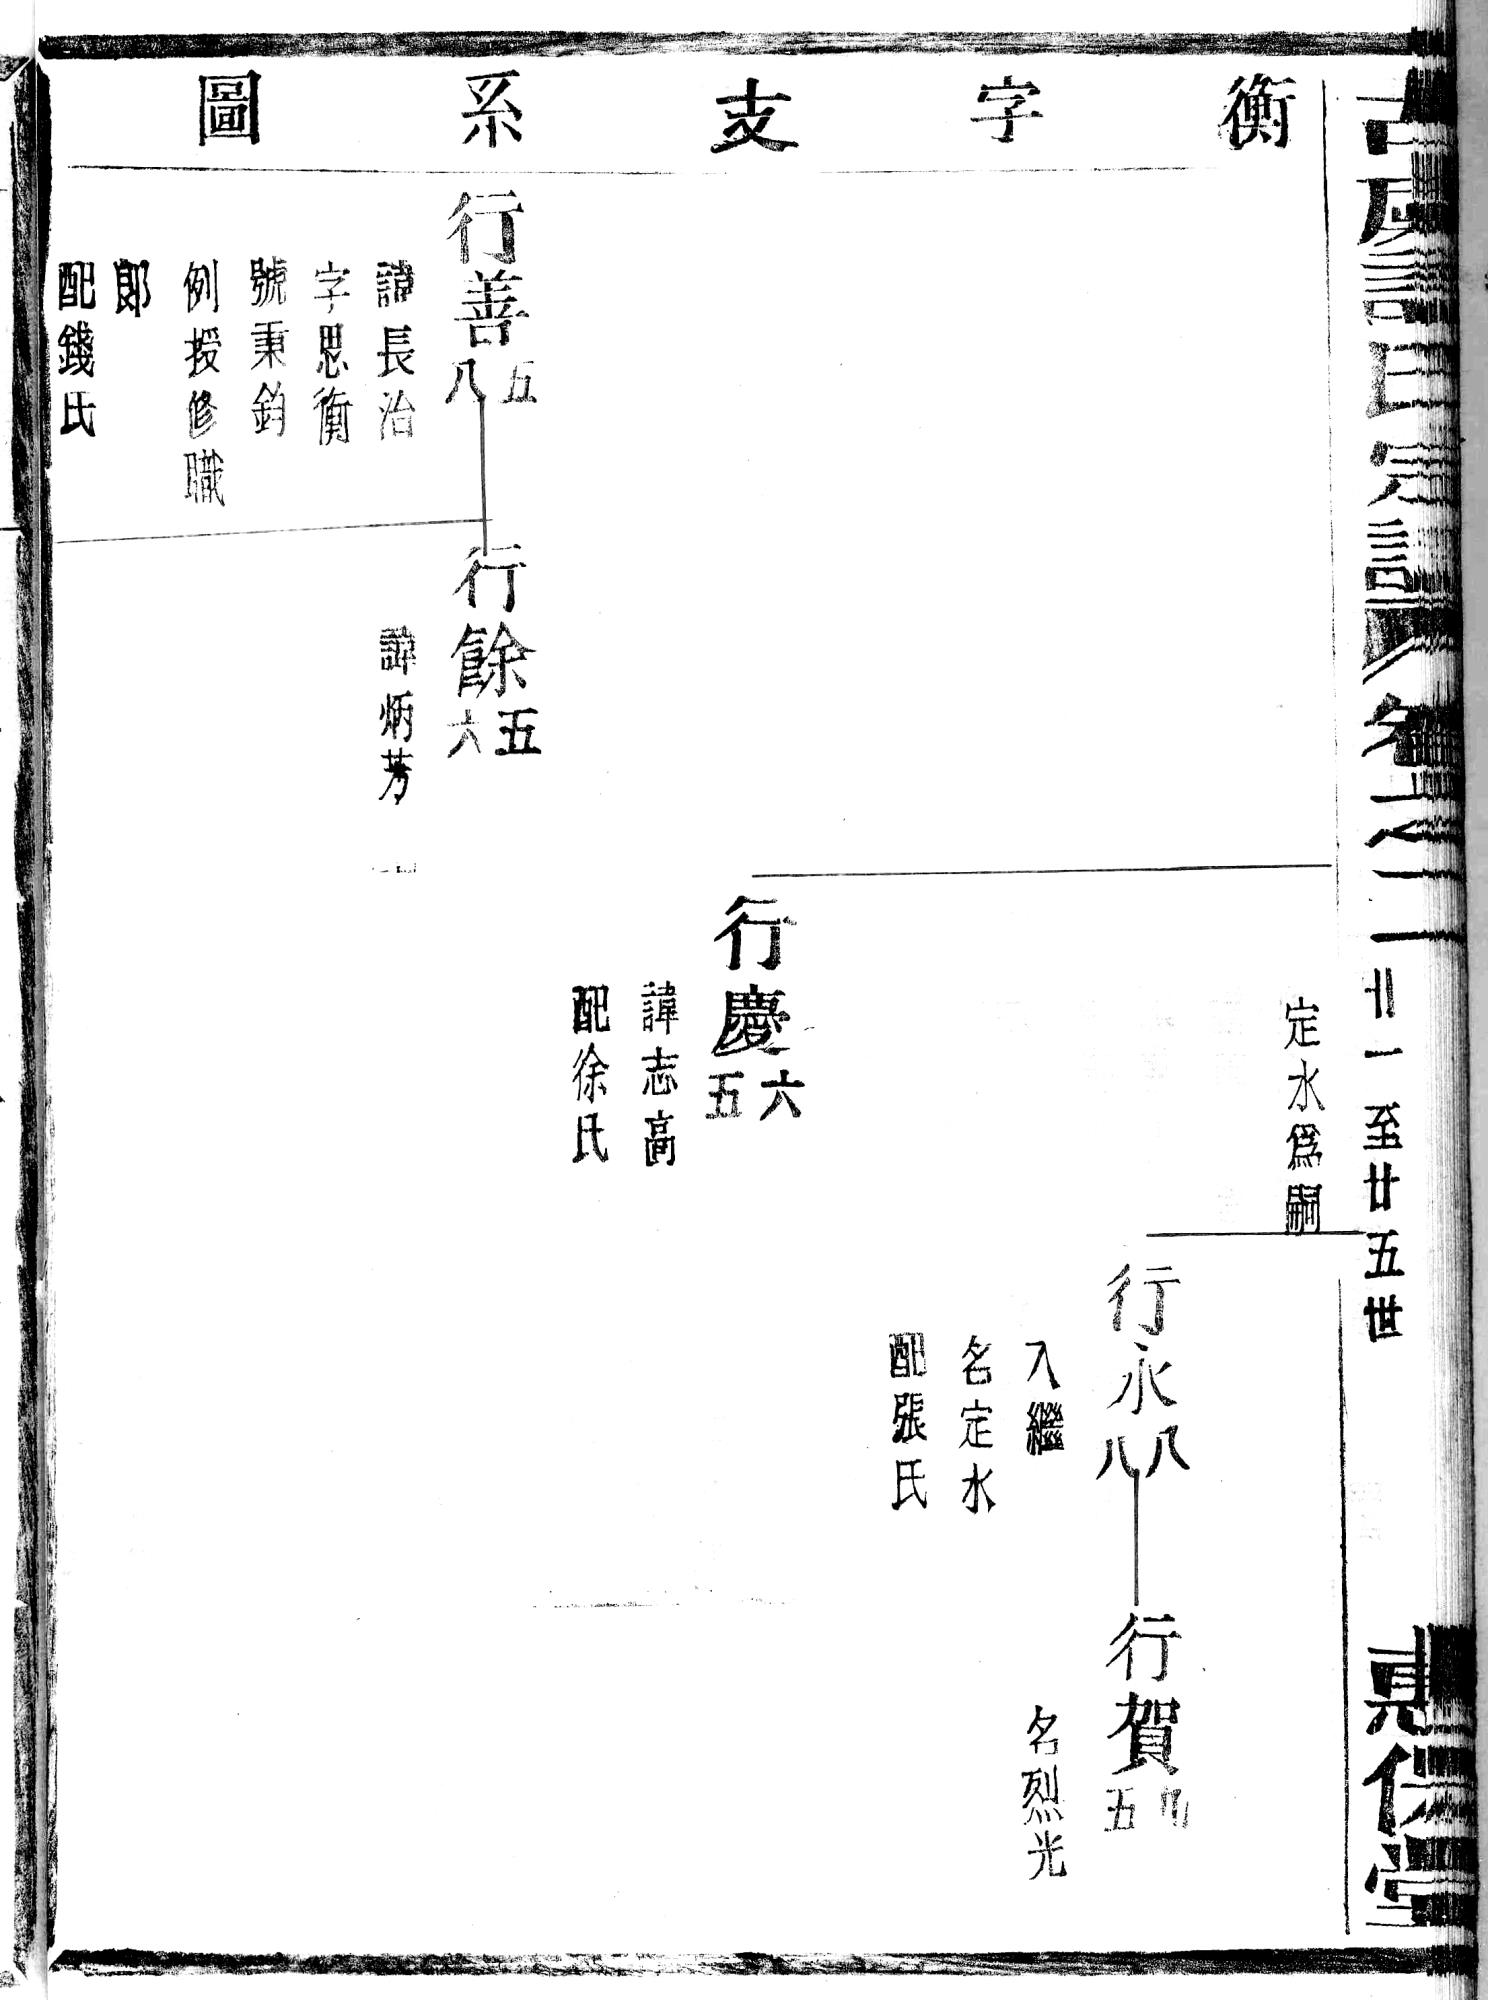 衡字支系圖
卷之二
廿一至廿五世
定水爲嗣
行永八八
入繼
名定水
配張氏
行賀五
名烈光
行慶六五
諱志高
配徐氏
行善五八
諱長治
字思衡
號秉鈞
例授修職
郎
配錢氏
行餘五六
諱炳芳